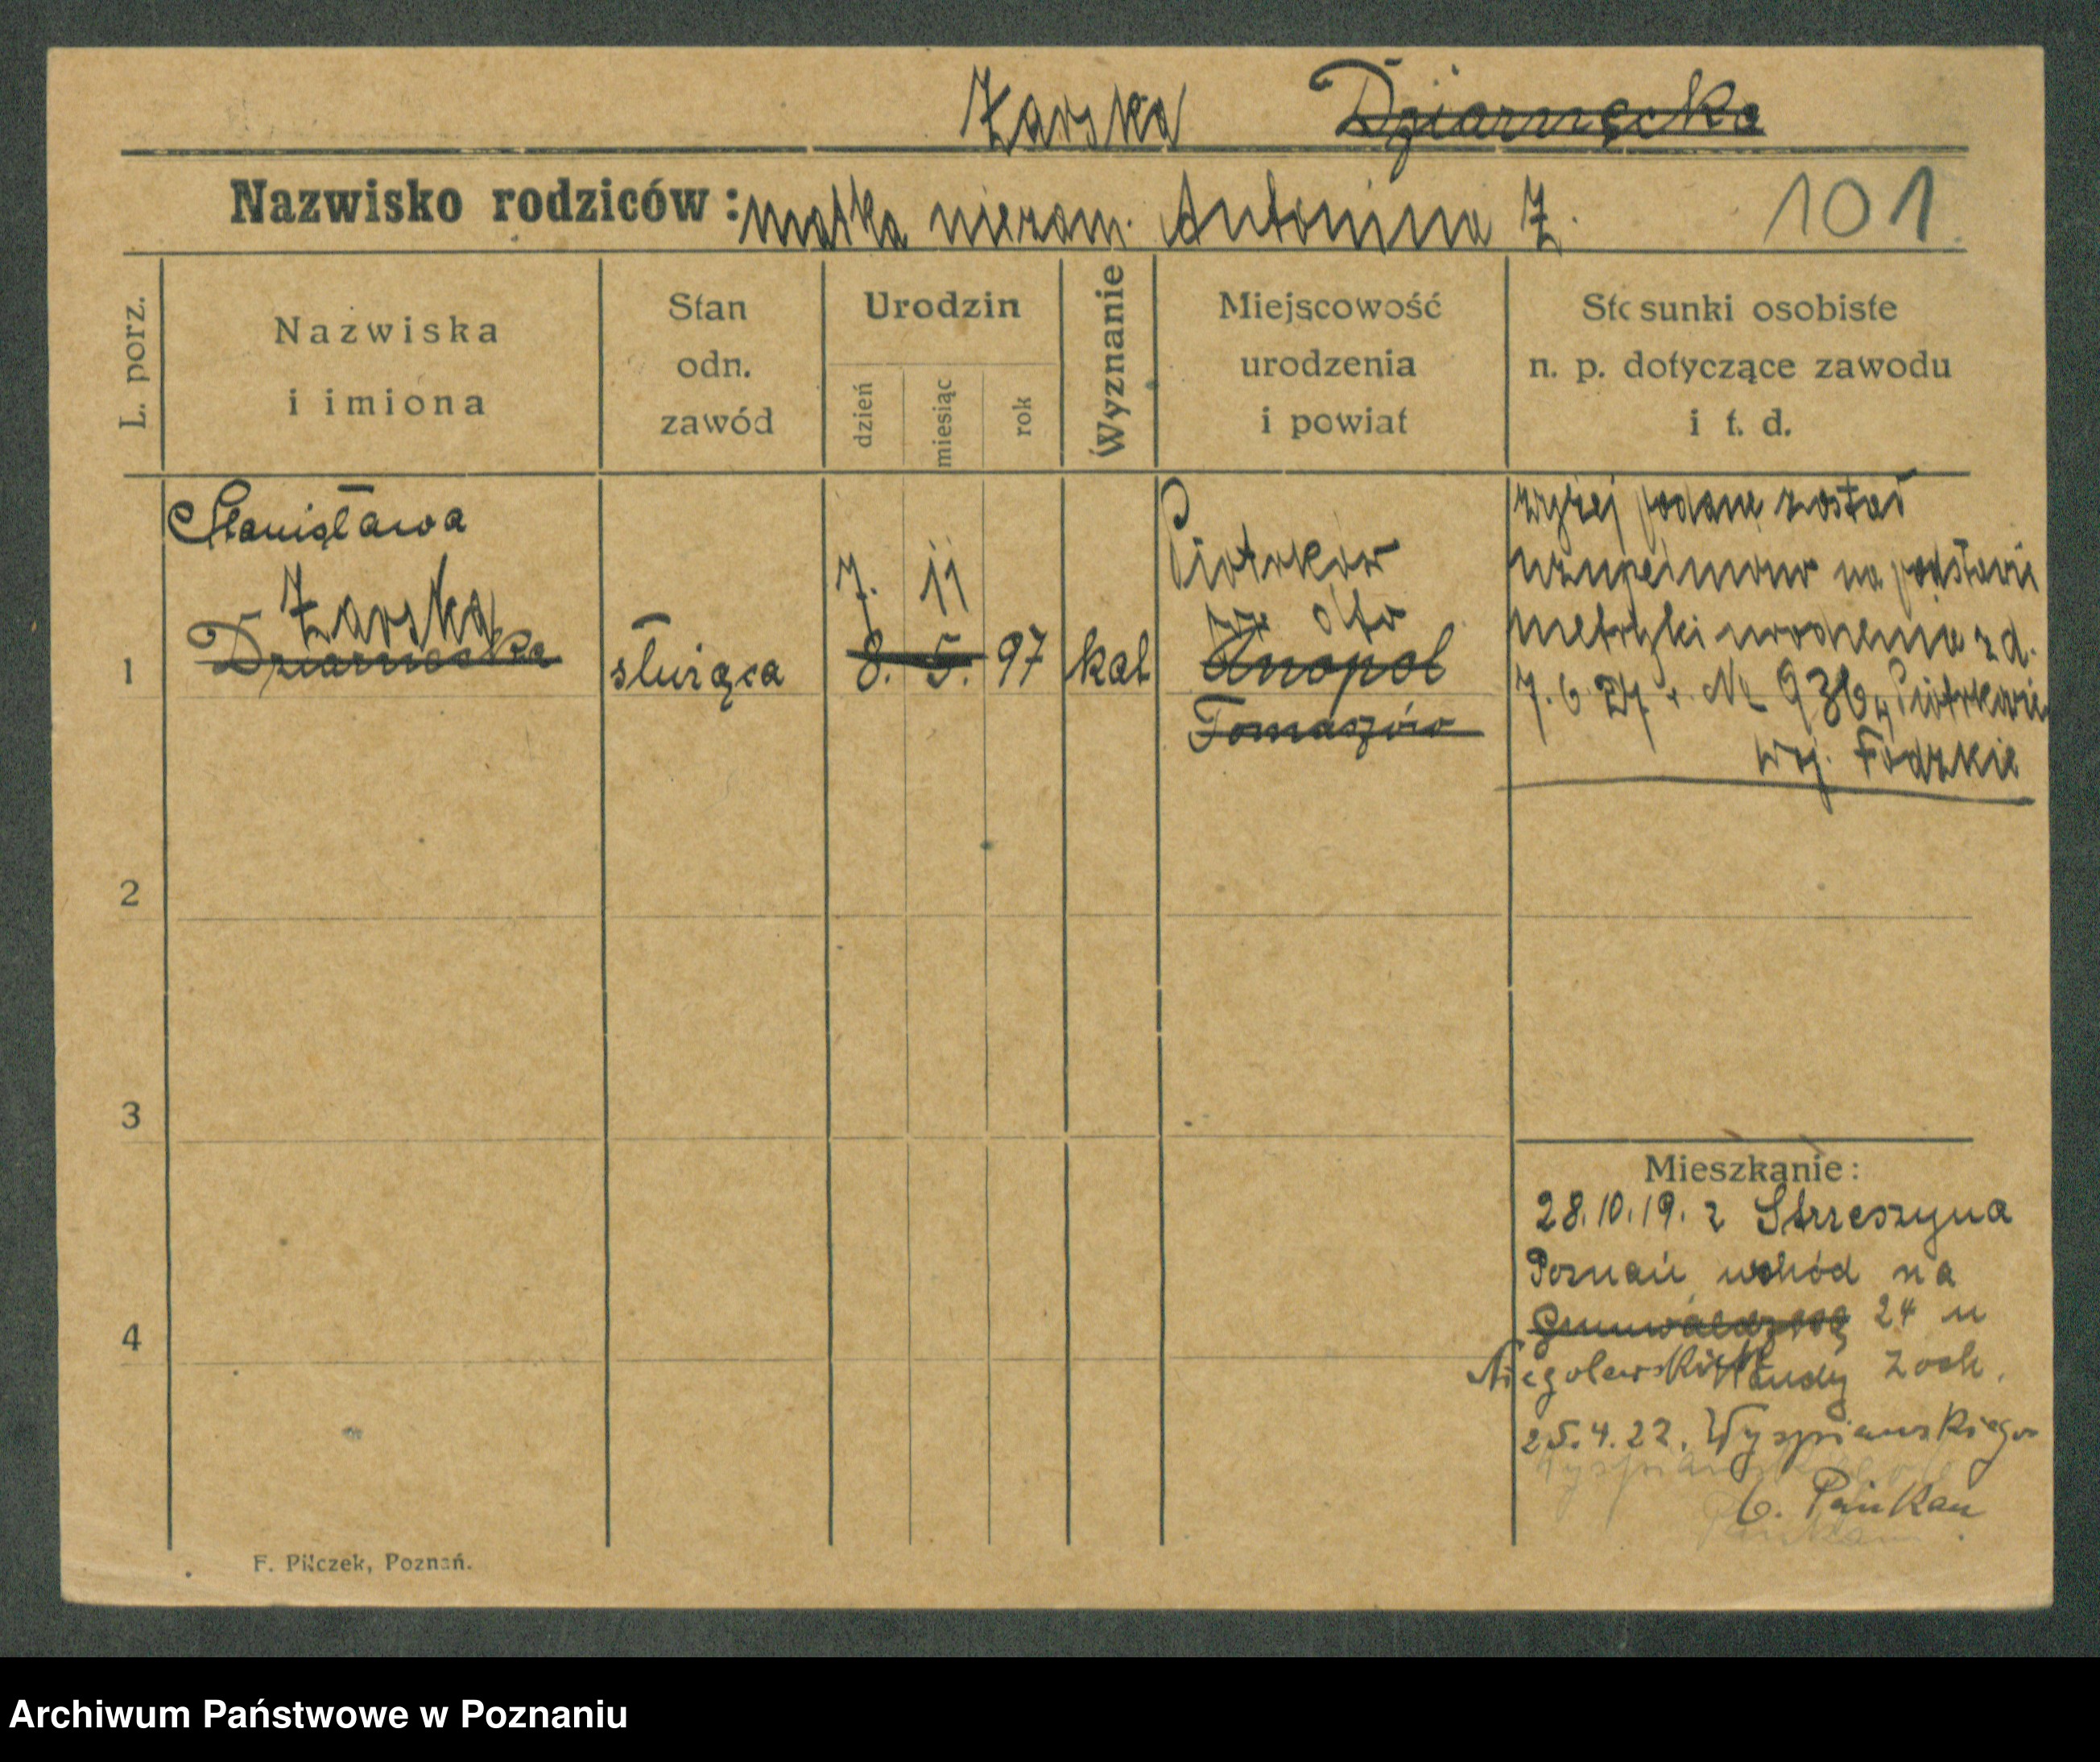 Żarska Dziarnecka
Nazwisko rodziców: matka niezam. Antonina Ż. 101
L. porz.
Nazwiska
i imiona
Stan
odn.
zawód
Urodzin
dzień
miesiąc
rok
Wyznanie
Miejscowość
urodzenia
i powiat
Stosunki osobiste
n. p. dotyczące zawodu
i t. d.
Stanisława
Żarska
1 Dziarnecka
służąca
7. 11
8. 5. 97
kat
Piotrków
Anopol
Tomaszów
wyżej podane został
uzupełniono na podstawie
metryki urodzenia z d.
7. 6 27 r. № 936, Piotrkowie
woj. Łódzkie
2
3
4
Mieszkanie:
28.10.19. z Strzeszyna
Poznań wchód na
Grunwaldzką 24 u
Niegolewskich
25.4.22. Wyspiańskiego
Wyspiańskiego
6.
F. Pilczek, Poznań.
Archiwum Państwowe w Poznaniu